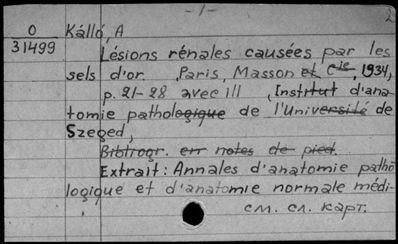 -1-
O Kálló, A
31499 Lésions rénales causées par les
sels d'or. , Paris, Masson et Cie, 1934,
p. 21-28 avec ill , Institut d'ana-
tomie pathologique de l'Université de
Szeged,
Bibliogr. en notes de pied.
Extrait: Annales d'anatomie patho
logique et d'anatomie normale médi-
см. сл. карт.